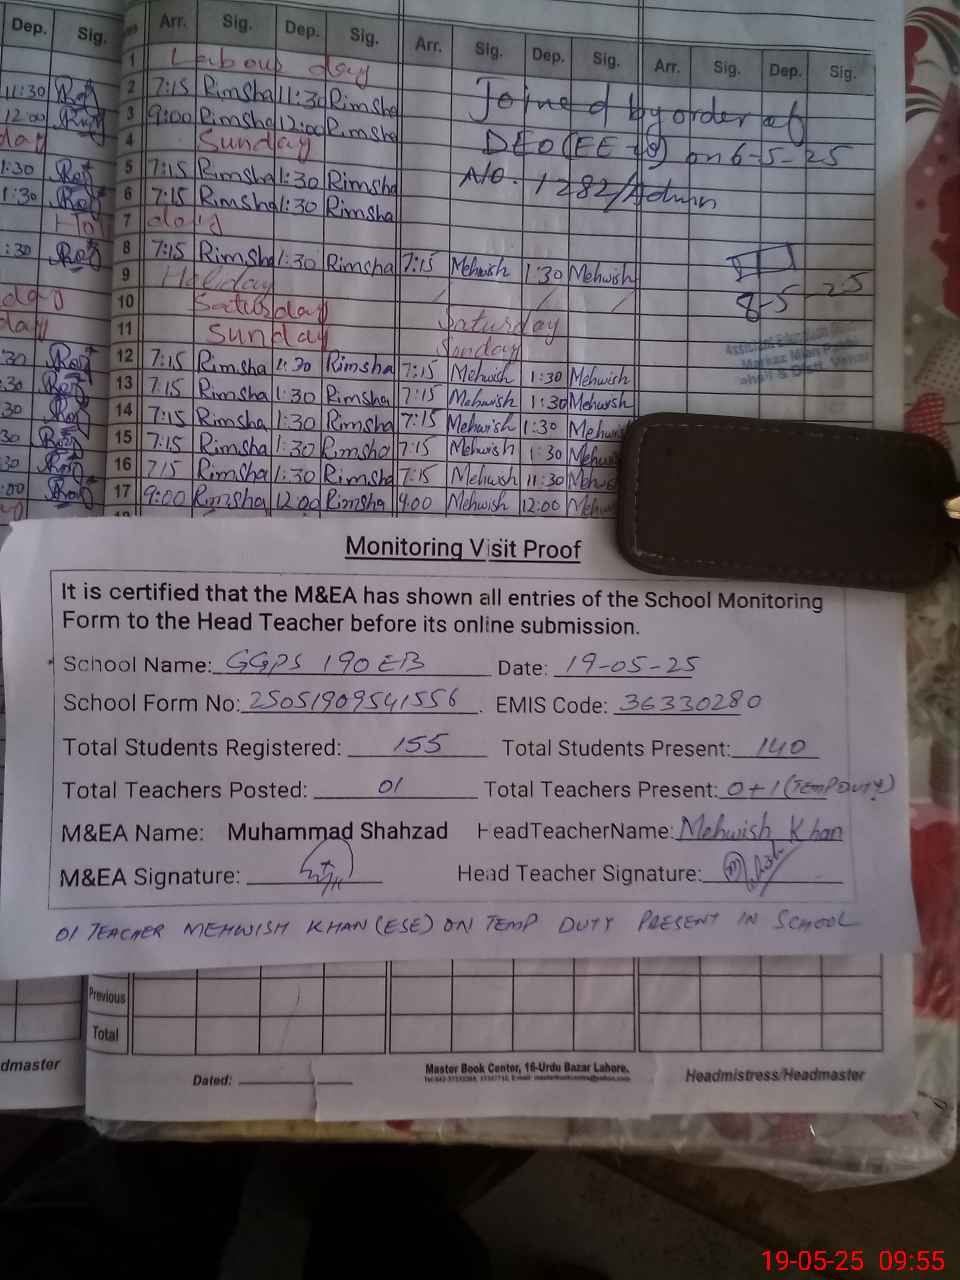 Dep. Sig. Arr. Sig. Dep. Sig. Arr. Sig. Dep. Sig. Arr. Sig. Dep. Sig.
1 Labour day
11:30 2 7:15 Rimsha 11:30 Rimsha Joined by order of
12:00 3 9:00 Rimsha 12:00 Rimsha DEO (EE-) on 6-5-25
day 4 Sunday
1:30 5 7:15 Rimsha 1:30 Rimsha No. 1282/Admn
1:30 6 7:15 Rimsha 1:30 Rimsha
Ho 7 days
:30 8 7:15 Rimsha 1:30 Rimsha 7:15 Mehwish 1:30 Mehwish
9 Holiday 8-5-25
10 Saturday Saturday
11 Sunday Sunday
:30 12 7:15 Rimsha 1:30 Rimsha 7:15 Mehwish 1:30 Mehwish
:30 13 7:15 Rimsha 1:30 Rimsha 7:15 Mehwish 1:30 Mehwish
:30 14 7:15 Rimsha 1:30 Rimsha 7:15 Mehwish 1:30
:30 15 7:15 Rimsha 1:30 Rimsha 7:15 Mehwish 1:30
:30 16 7:15 Rimsha 1:30 Rimsha 7:15 Mehwish 11:30
:00 17 9:00 Rimsha 12:00 Rimsha 9:00 Mehwish 12:00
Monitoring Visit Proof
It is certified that the M&EA has shown all entries of the School Monitoring
Form to the Head Teacher before its online submission.
School Name: GGPS 190 EB Date: 19-05-25
School Form No: 25051909541556 EMIS Code: 36330280
Total Students Registered: 155 Total Students Present: 140
Total Teachers Posted: 01 Total Teachers Present: 0+1 (TEMP DUTY)
M&EA Name: Muhammad Shahzad HeadTeacherName: Mehwish Khan
M&EA Signature: Head Teacher Signature:
01 TEACHER MEHWISH KHAN (ESE) ON TEMP DUTY PRESENT IN SCHOOL
Previous
Total
dmaster Dated: Master Book Center, 16-Urdu Bazar Lahore. Headmistress/Headmaster
19-05-25 09:55